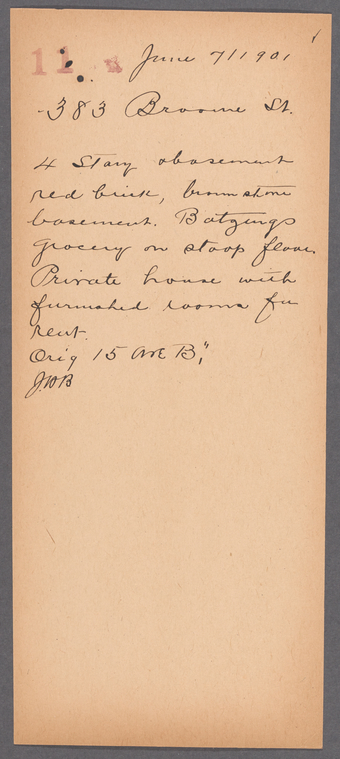 11
June 7/1901
383 Broome St.
4 Story & basement
red brick, brown stone
basement. Batzings
grocery on stoop floor.
Private house with
furnished rooms for
rent.
Orig 15 Ave B,"
J.W.B